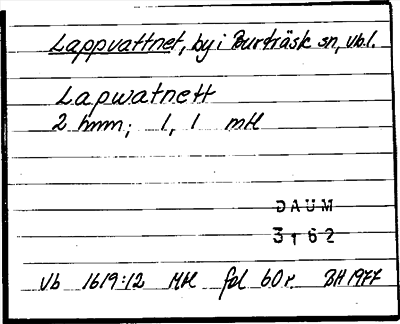 Lappvattnet, by i Burträsk sn, vb.l.
Lapwatnett
2 hmn; 1, 1 mtl
DAUM
3162
Vb 1619:12 Mtl fol 60r. BH 1977